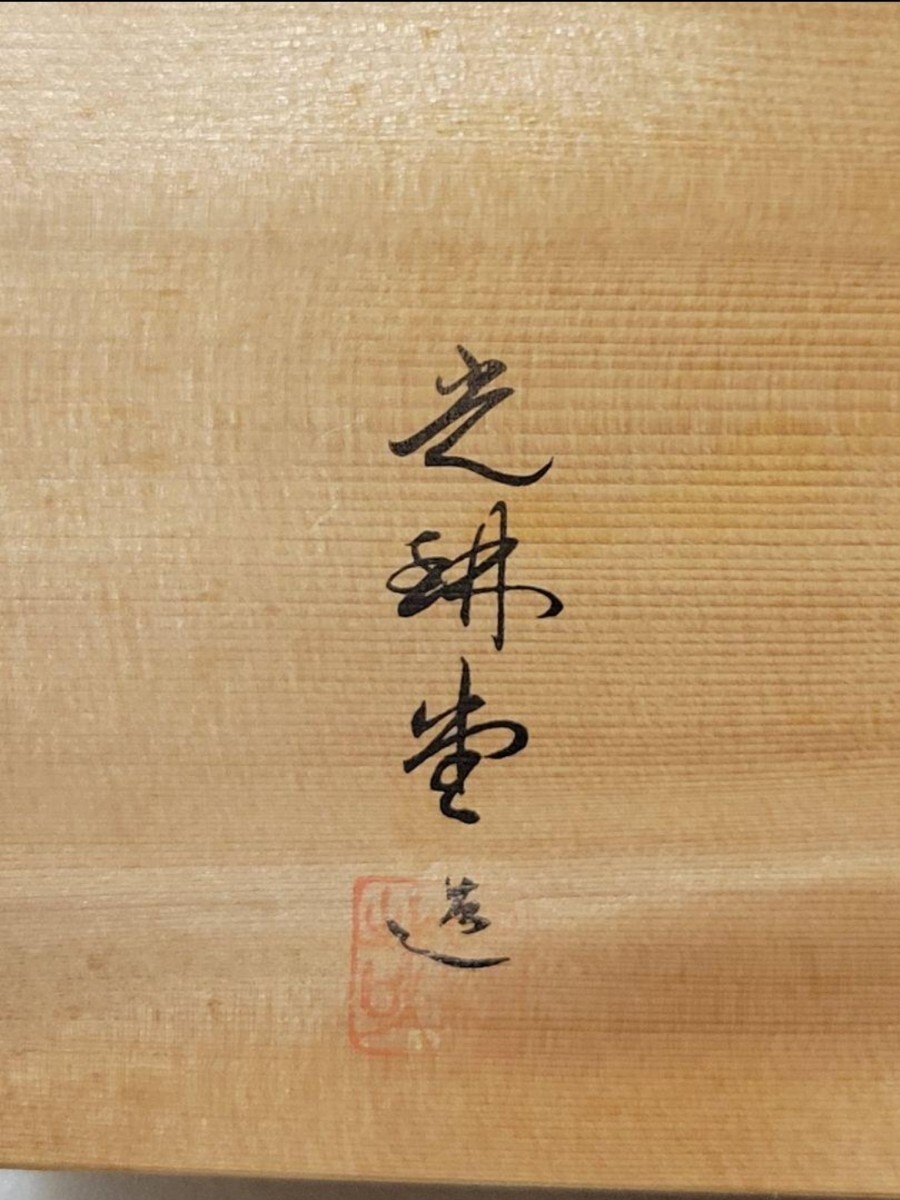 光琳堂造